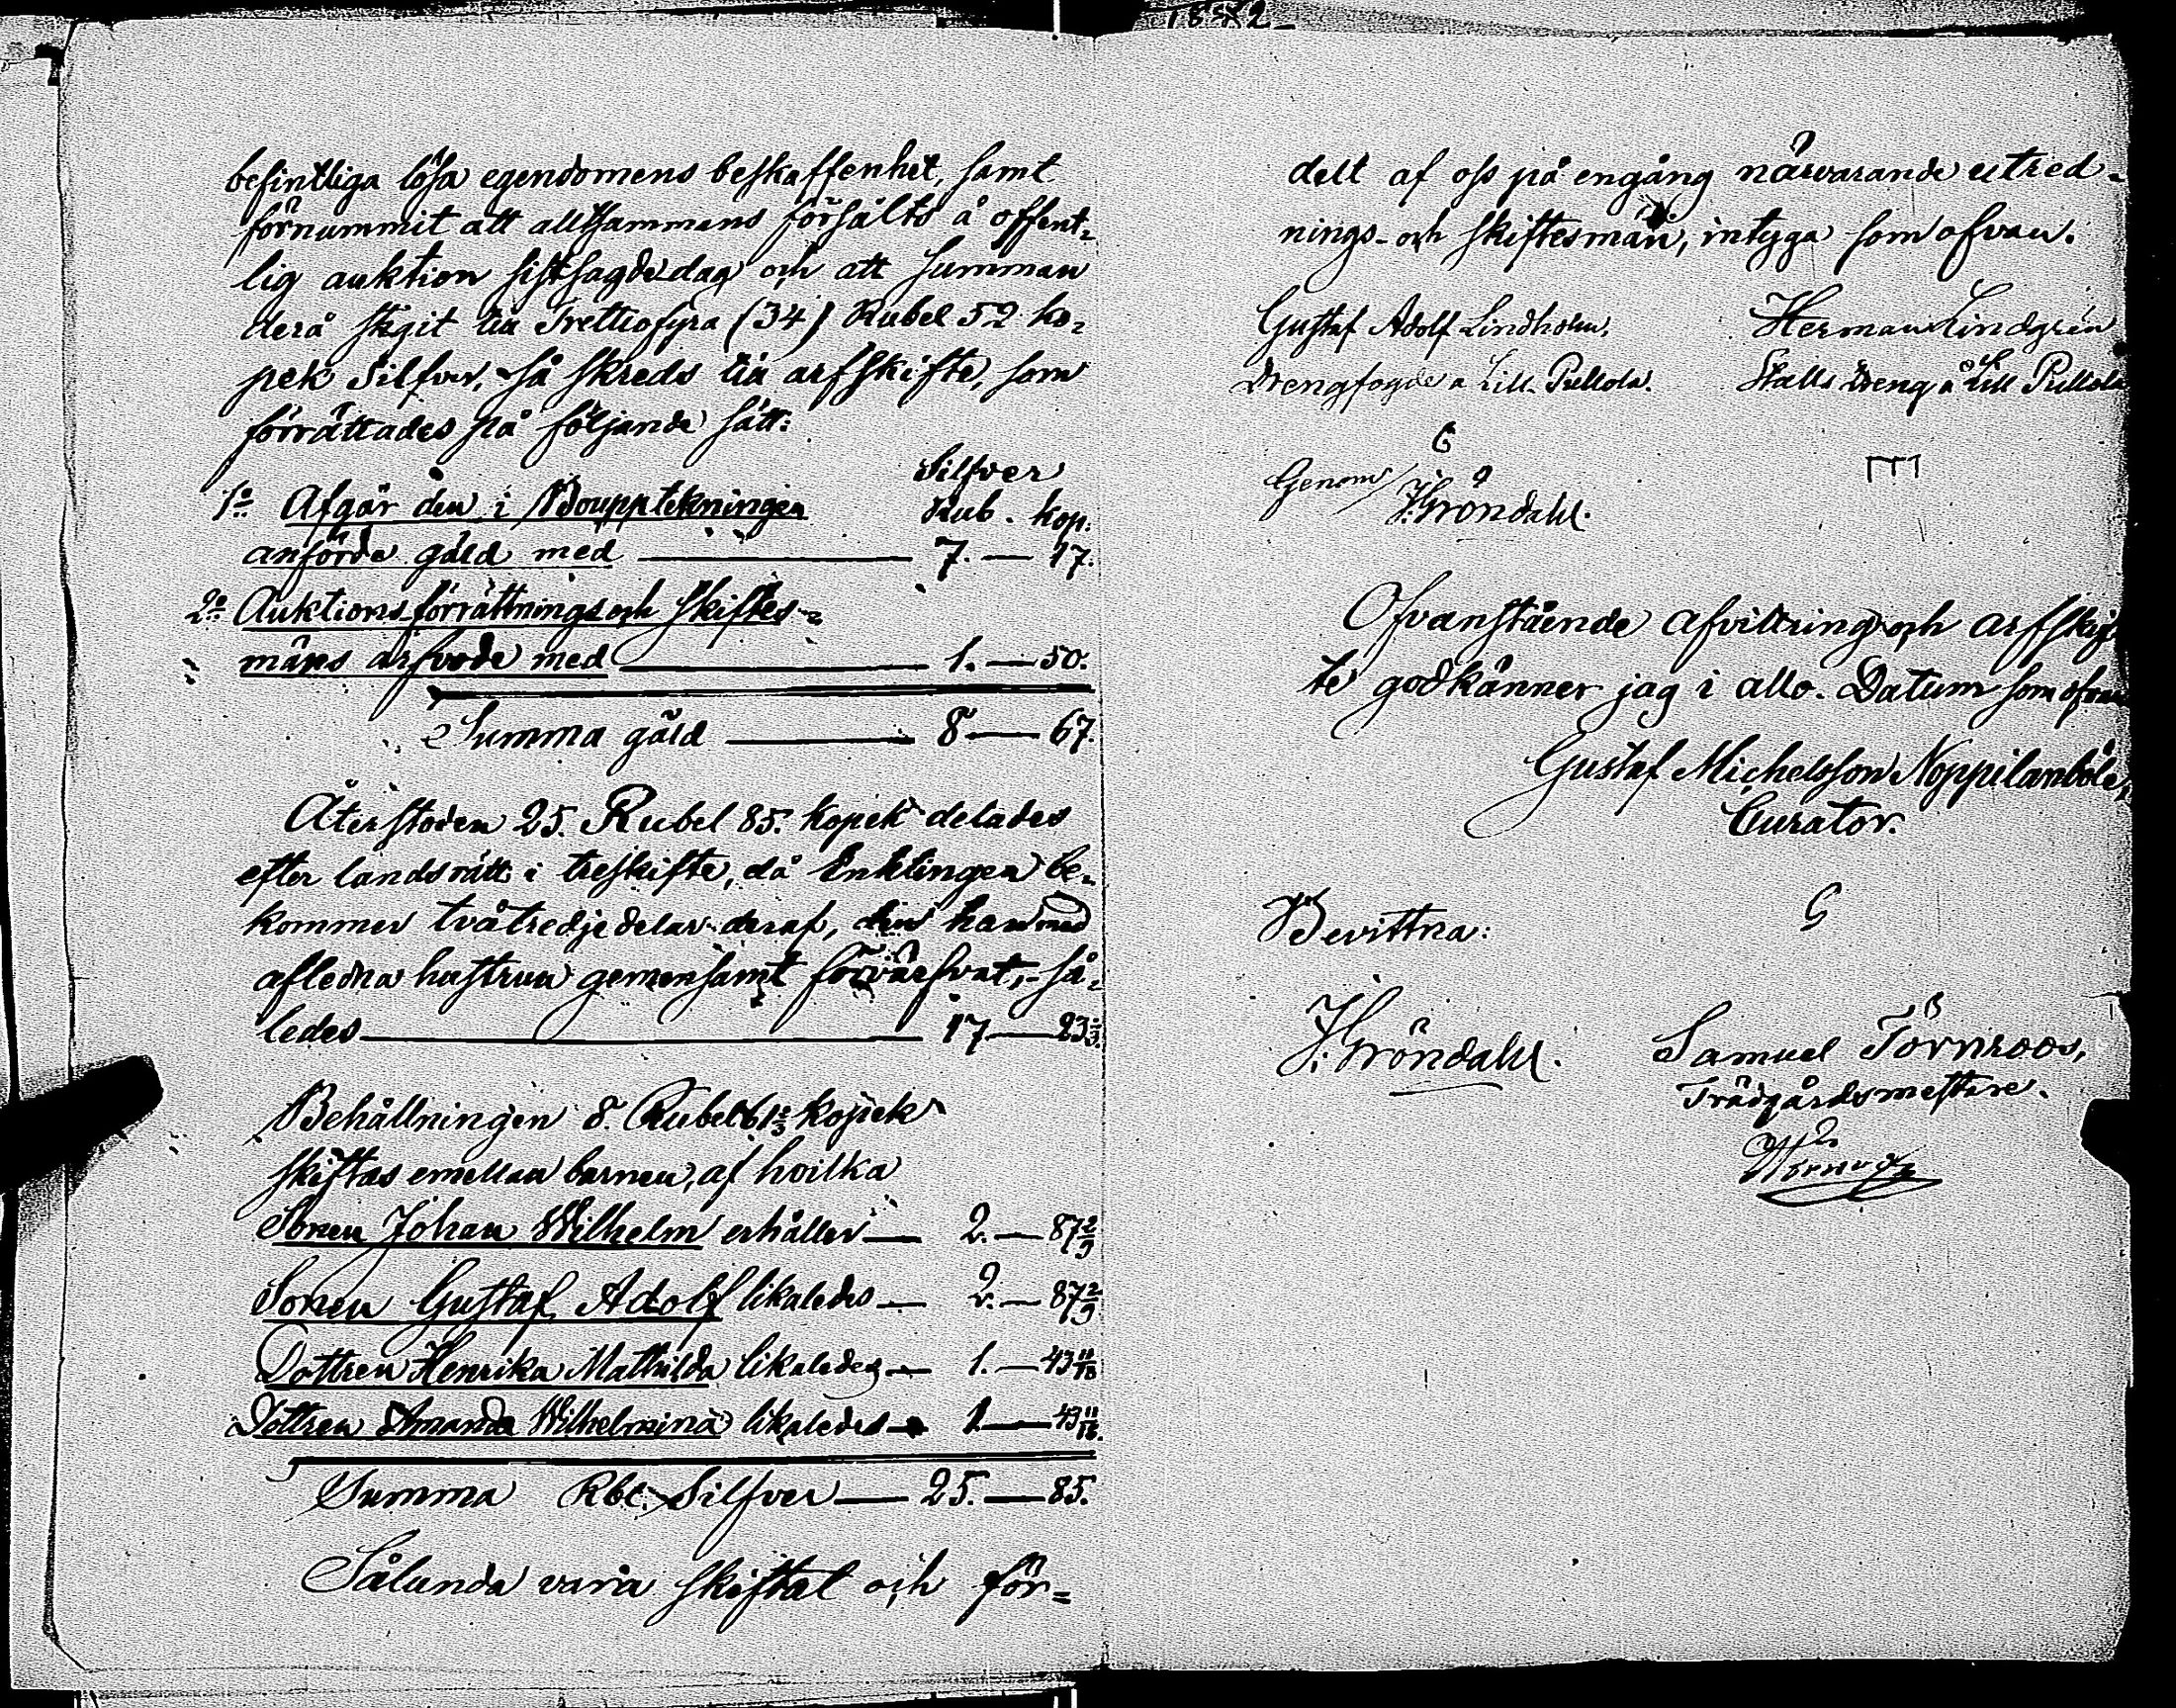 befintliga lösa egendomens beskaffenhet, samt
förnummit att alltsammans försålts å offent-
lig auktion sistsagde dag och att summan
derå stigit till Trettiofyra (34) Rubel 52 ko-
pek Silfver, så skreds till arfskifte, som
förrättades på följande sätt:
Silfver
1o Afgår den i Bouppteckningen Rub. kop.
anförde gäld med 7. — 17.
2o Auktions-förrättnings och Skiftes-
mäns arfvode med 1. — 50.
Summa gäld 8 — 67.
Återstoden 25. Rubel 85. kopek delades
efter landsrätt i treskifte, då Enklingen be-
kommer två tredjedelar deraf, den han med
aflidna hustrun gemensamt förvärfvat, så-
ledes 17 — 23 1/3.
Behållningen 8. Rubel 61 2/3 kopek
skiftas emellan barnen, af hvilka
Sonen Johan Wilhelm erhåller — 2. — 87 2/9
Sonen Gustaf Adolf likaledes — 2. — 87 2/9.
Dottren Henrika Mathilda likaledes — 1. — 43 11/18
Dottren Amanda Wilhelmina likaledes — 1 — 43 11/18.
Summa Rbl. Silfver — 25. — 85.
Sålunda vara skiftat och för-
1852
delt af oss på engång närvarande utred-
nings- och skiftesmän, intyga som ofvan.
Gustaf Adolf Lindholm, Herman Lindgrén
Drengfogde å Lill Pellola. Stalls dreng å Lill Pellola
Genom
J. Gröndahl.
Ofvanstående afvittring och arfskif-
te godkänner jag i allo. Datum som ofvan
Gustaf Michelsson Noppilanböle,
Curator.
Bevittna:
J. Gröndahl. Samuel Törnroos,
Trädgårdsmestare.